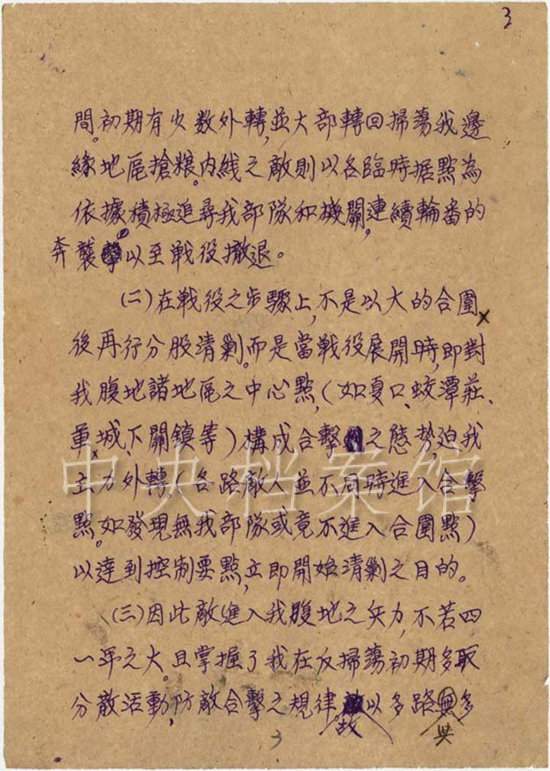 3
間。初期有少数外轉,並大部轉回掃蕩我邊
緣地區搶粮。内线之敵則以各臨時据點為
依據積極追尋我部隊和機關,連續輪番的
奔襲以至戰役撤退。
(二)在戰役之步驟上,不是以大的合圍
後再行分股清剿。而是當戰役展開時,即對
我腹地諸地區之中心點,(如夏口、蛟潭莊、
軍城、下關鎮等)構成合擊之態势,迫我
主力外轉(各路敵人並不同時進入合擊
點。如發現無我部隊或竟不進入合圍點)
以達到控制要點,立即開始清剿之目的。
(三)因此敵進入我腹地之矢力,不若四
一年之大。且掌握了我在反掃蕩初期多取
分散活動,防敵合擊之規律,故以多路與多
3
中央档案馆